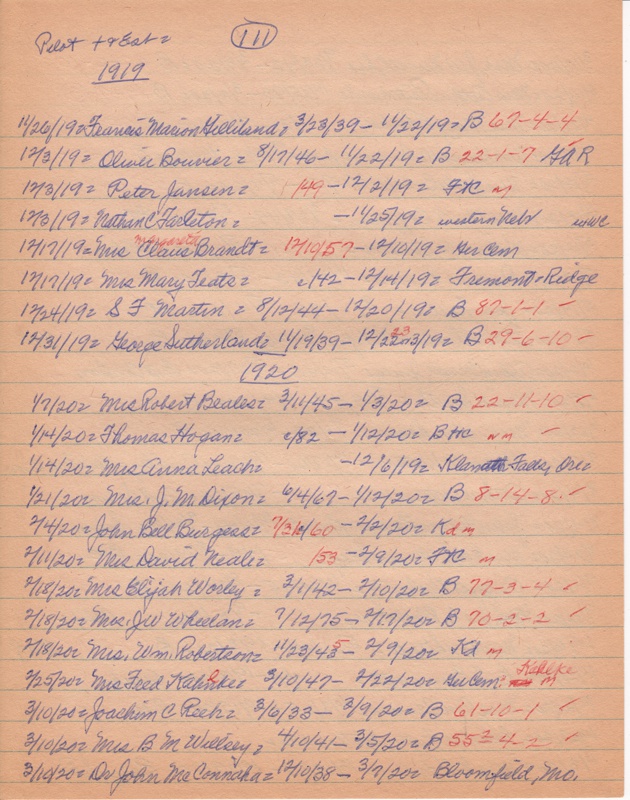 Pilot + & Est = 111
1919
11/26/19 = Francis Marion Gilliland = 3/23/39 - 11/22/19 = B 67-4-4
12/3/19 = Oliver Bouvier = 8/17/46 - 11/22/19 = B 22-1-7 ✓ GAR
12/3/19 = Peter Jansen = /49 - 12/2/19 = FHC m
12/3/19 = Nathan C Tarleton = - 11/25/19 = western Nebr
margareta
12/17/19 = Mrs Claus Brandt = 12/10/57 - 12/10/19 = Ger Cem
12/17/19 = Mrs Mary Teats = c/42 - 12/14/19 = Fremont = Ridge
12/24/19 = S F Martin = 8/12/44 - 12/20/19 = B 87-1-1 ✓
12/31/19 = George Sutherland = 11/19/39 - 12/22 23 /19 = B 29-6-10 ✓
1920
1/7/20 = Mrs Robert Beales = 3/11/45 - 1/3/20 = B 22-11-10 ✓
1/14/20 = Thomas Hogan = c/82 - 1/12/20 = B HC m ✓
1/14/20 = Mrs Anna Leach = - 12/6/19 = Klamath Falls, Ore
1/21/20 = Mrs. J. M. Dixon = 6/4/67 - 1/12/20 = B 8-14-8 ✓
2/4/20 = John Bell Burgess = 7/31/60 - 2/2/20 = Kd m
2/11/20 = Mrs David Neale = /53 - 2/9/20 = FHC m
2/18/20 = Mrs Elijah Worley = 3/1/42 - 2/10/20 = B 77-3-4 ✓
2/18/20 = Mrs. JW Wheelan = 7/12/75 - 2/17/20 = B 70-2-2 ✓
2/18/20 = Mrs. Wm. Robertson = 11/23/43 5 - 2/9/20 = Kd m
2/25/20 = Mrs Fred Kahnke = 3/10/47 - 2/22/20 = Ger Cem = Kahlke m
3/10/20 = Joachim C Reeh = 3/6/33 - 3/9/20 = B 61-10-1 ✓
3/10/20 = Mrs B M Willsey = 4/10/41 - 3/5/20 = B 55-4-2 ✓
3/10/20 = Dr John McConnaha = 12/10/38 - 3/7/20 = Bloomfield, Mo.